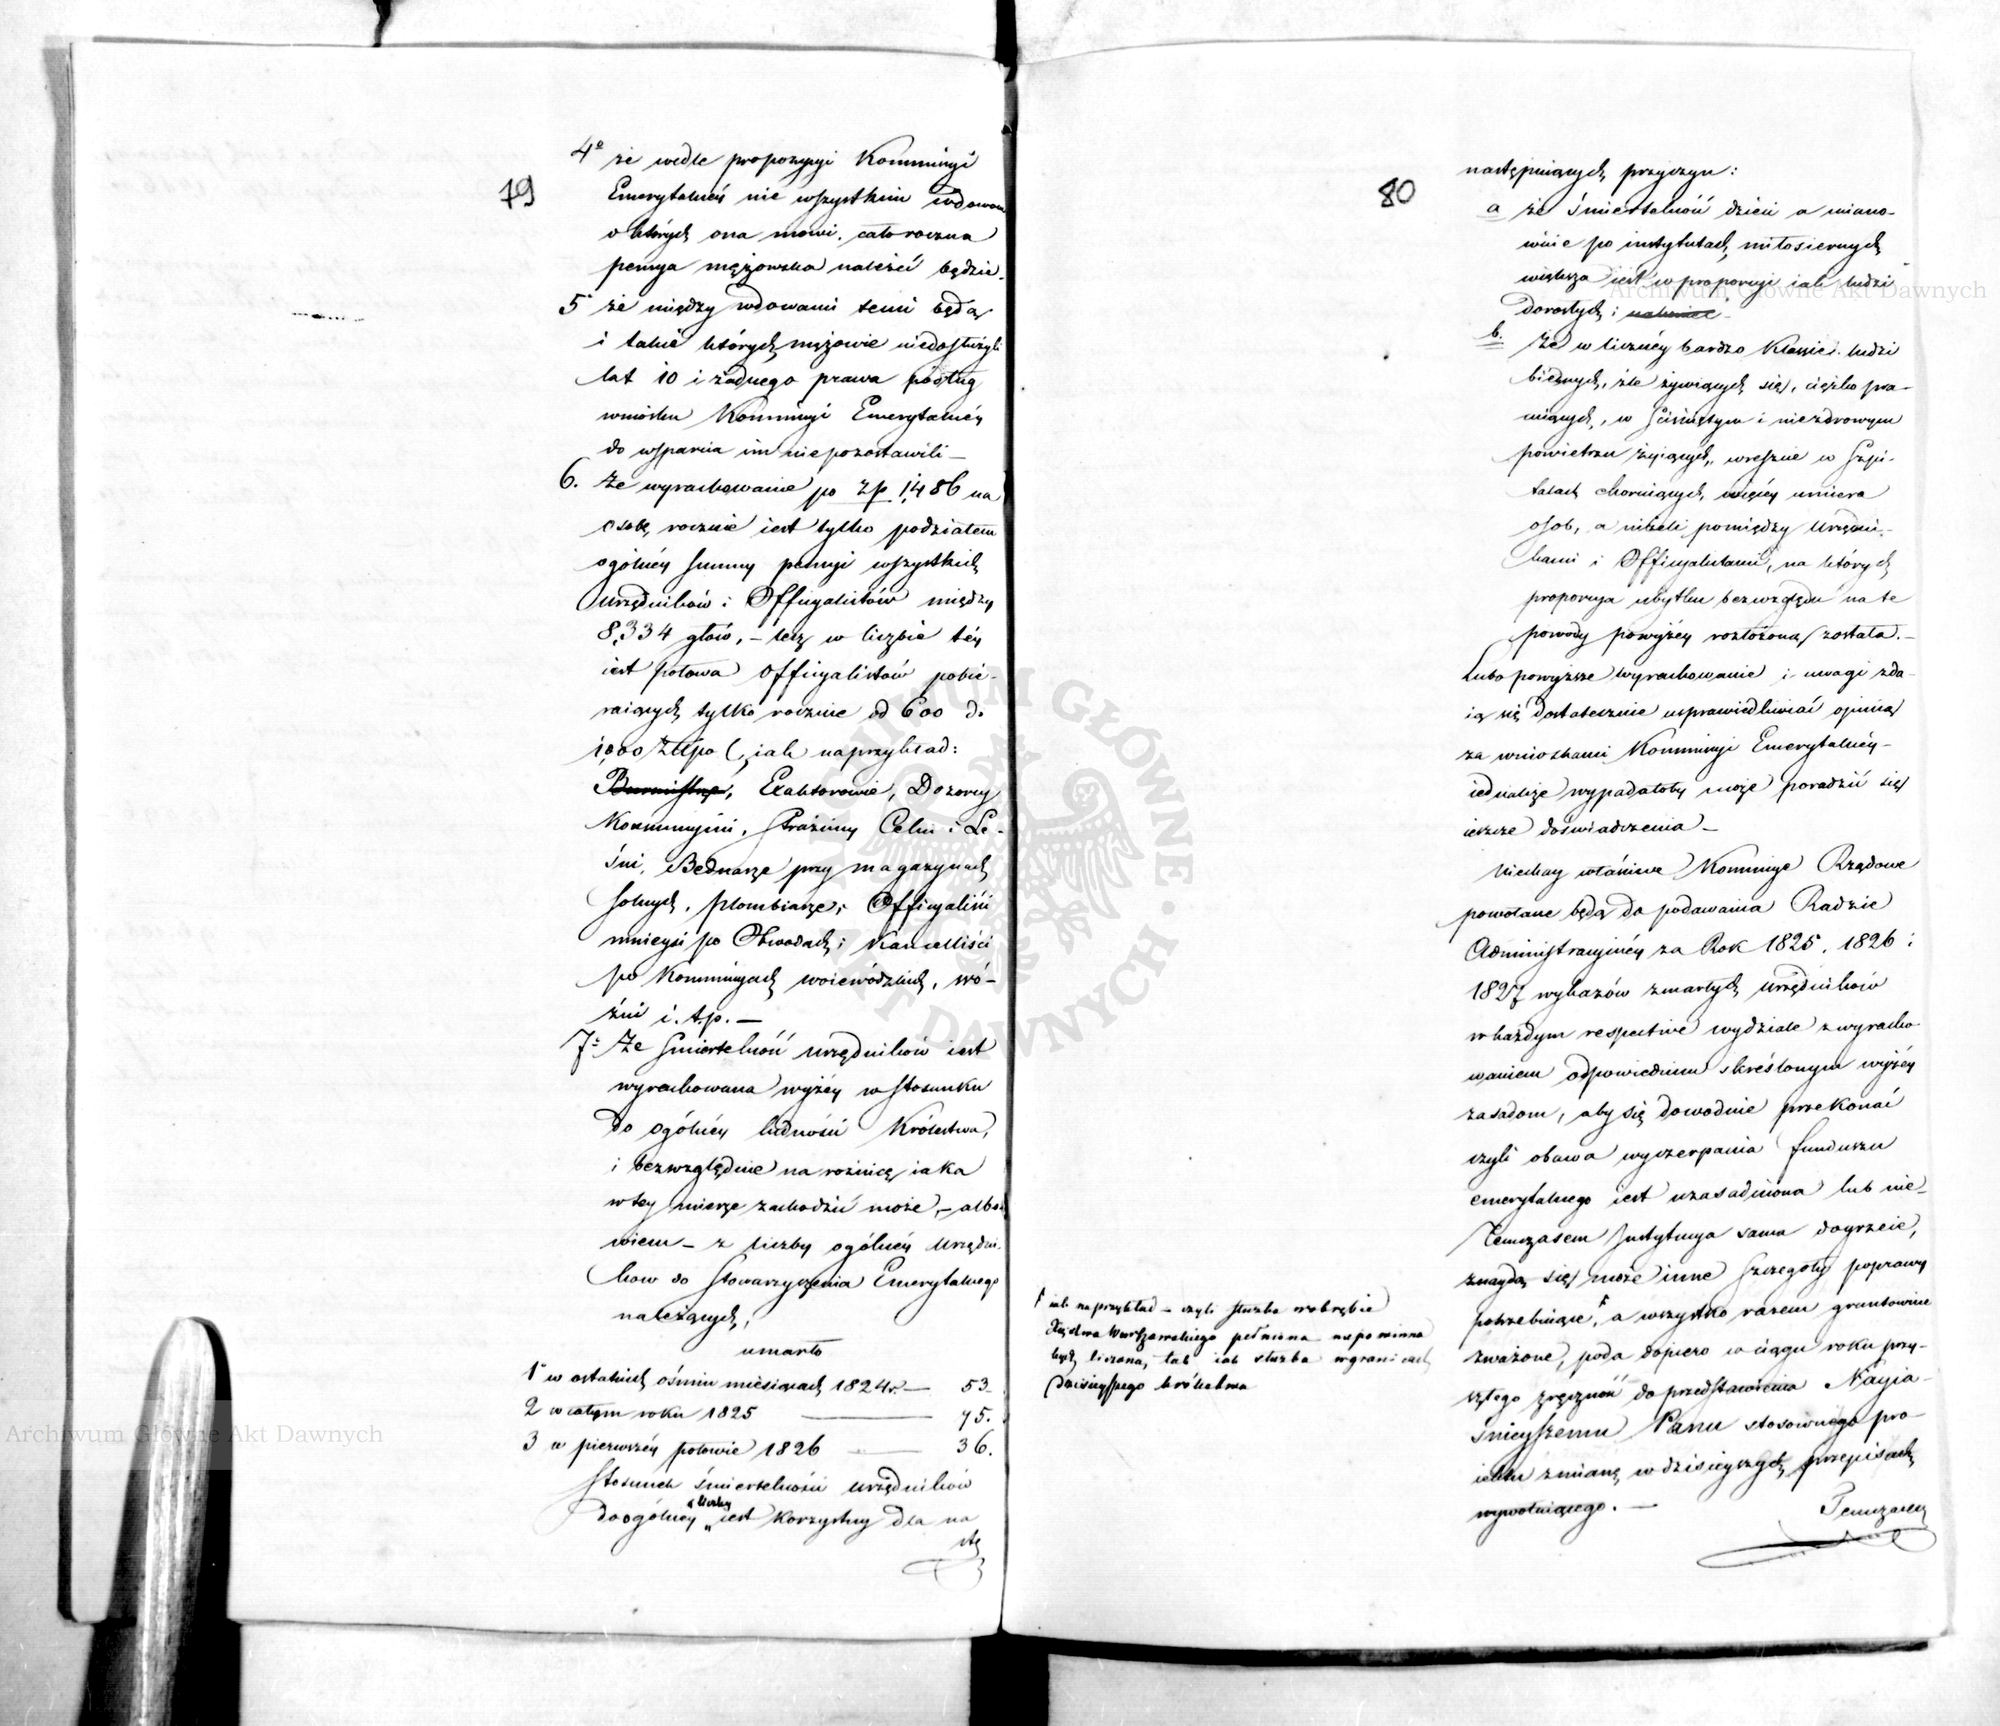 79
4º że wedle propozycyi Kommissyi
Emerytalnéy nie wszystkim wdowom
o których ona mowi, całoroczna
pensya mężowska należéć będzie.
5º że między wdowami temi będą
i takie których mężowie niedosłużyli
lat 10 i żadnego prawa podług
wniosku Kommissyi Emerytalnéy
do wsparcia im niepozostawili —
6. Że wyrachowanie po Zp 1,486 na
osobę rocznie iest tylko podziałem
ogólnéy summy pensyi wszystkich
Urzędników i Officyalistów między
8,334 głów, — lecz w liczbie téy
iest połowa officyalistów pobie-
raiących tylko rocznie od 600 do
1,000 Złłpo (, iak naprzykład:
Burmistrze, Exaktorowie, Dozorcy
Konsumpcyini, Strażnicy Celni i Le-
śni, Bednarze przy magazynach
solnych, plombiarze, Officyaliści
mnieysi po Obwodach i Kancelliści
po Kommissyach woiewódzkich, wó-
źni i. t. p. —
7º Że śmiertelność urzędników iest
wyrachowana wyżéy w stosunku
do ogólnéy ludności Królestwa,
i bezwzględnie na rożnicę iaka
w tey mierze zachodzić może, — albo
wiem — z liczby ogólnéy Urzędni-
kow do Stowarzyszenia Emerytalnego
należących,
umarło
1º w ostatnich ośmiu miesiącach 1824 r. — 53.
2 w całym roku 1825 — 75.
3 w pierwszéy połowie 1826 — 36.
Stosunek śmiertelności urzędników
do ogólnéy liczby iest korzystny dla na
stę
80
następuiących przyczyn:
a że śmiertelność dzieci a miano-
wicie po instytutach miłosiernych
większa iest w proporcyi iak ludzi
dorosłych i
b. Że w licznéy bardzo Klassie ludzi
biednych, źle żywiących się, ciężko pra-
cuiących, w ściśniętym i niezdrowym
powietrzu żyiących, wreszcie w Szpi-
talach choruiących, więcéy umiera
osob, a niżeli pomiędzy Urzędni-
kami i Officyalistami, na których
proporcya ubytku bezwzględu na te
powody powyżéy rozłożoną została. —
Lubo powyższe wyrachowanie i uwagi zda-
ią się dostatecznie usprawiedliwiać opinią
za wnioskami Kommissyi Emerytalnéy —
iednakże wypadałoby może poradzić się
ieszcze doświadczenia —
Niechay właściwe Kommissye Rządowe
powołane będą do podawania Radzie
Administracyinéy za Rok 1825, 1826 i
1827 wykazów zmarłych urzędników
w każdym respective wydziale z wyracho
waniem odpowiedniem skréślonym wyżéy
zasadom, aby się dowodnie przekonać
czyli obawa wyczerpania funduszu
emerytalnego iest uzasadniona lub nie —
Temczasem Instytucya sama doyrzeie,
znaydą się może inne szczegoły poprawy
potrzebuiące, F a wszystko razem gruntownie
zważone, poda dopiero w ciągu roku przy-
szłego zręczność do przedstawienia Nayia-
śnieyszemu Panu stosownego pro-
iektu zmianę w dzisieyszych przepisach
wywołuiącego. —
Temczasem
F iak naprzykład — czyli służba w obrębie
Xięstwa Warszawskiego pełniona niepowinna
bydź liczoną, tak iak służba w granicach
dzisieyszego królestwa
Archiwum Główne Akt Dawnych
Archiwum Główne Akt Dawnych
Archiwum Główne Akt Dawnych
ARCHIWUM GŁÓWNE AKT DAWNYCH